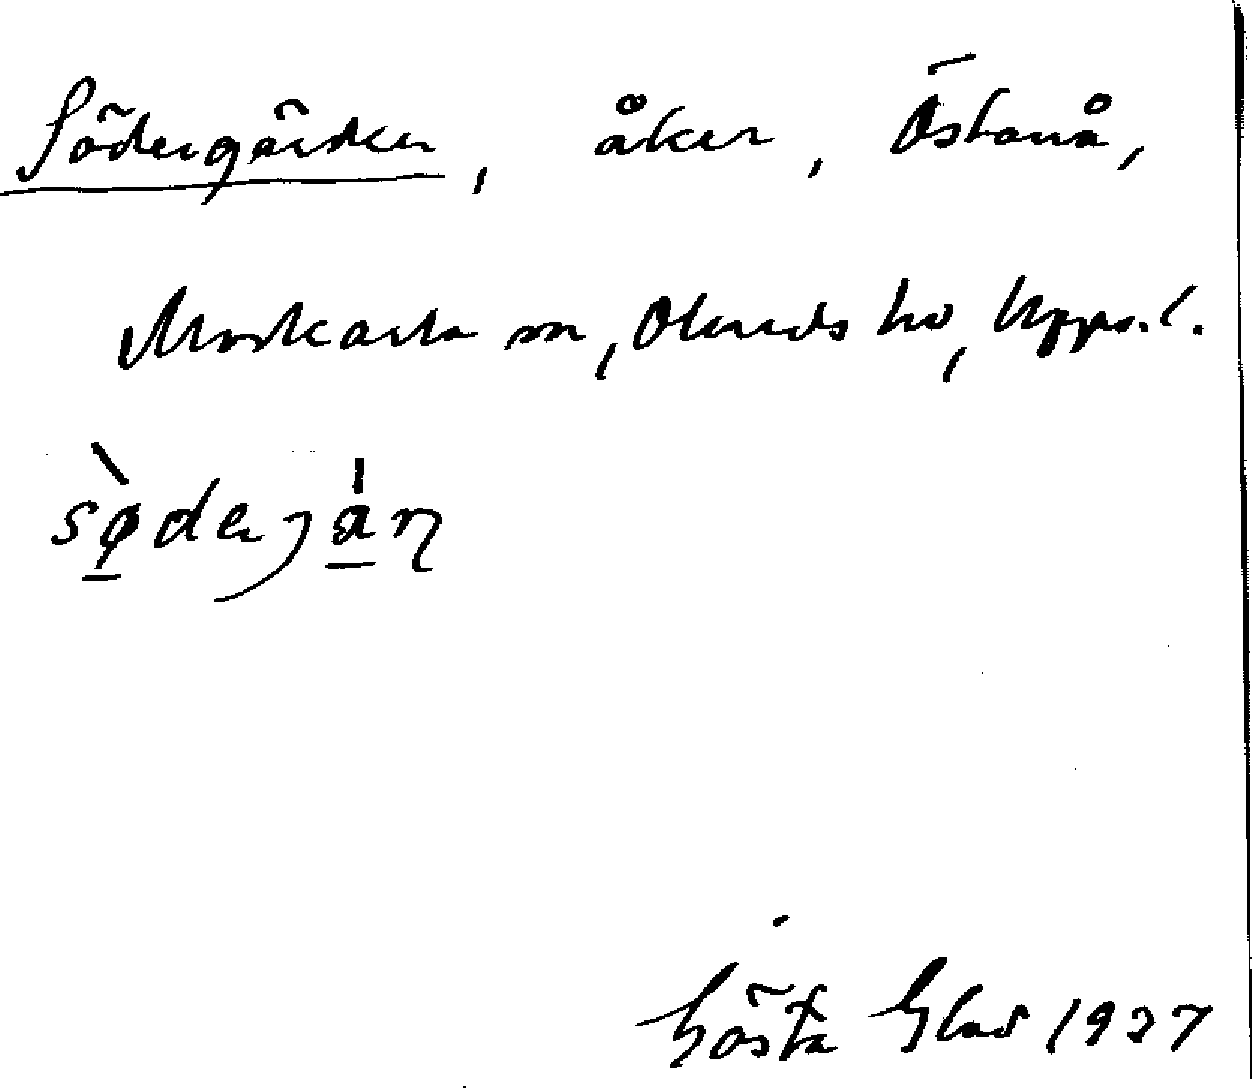 Södergärden, åker, Östanå,
Morkarla sn, Olands hd, Upps. l.
Gösta Glad 1927